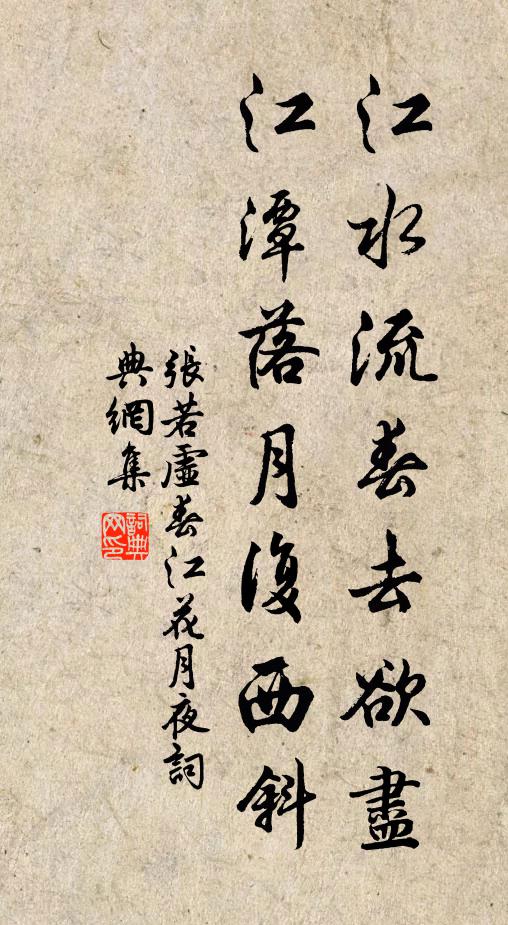 江水流春去欲盡
江潭落月復西斜
張若虛春江花月夜詞
典網集
詞典
网印